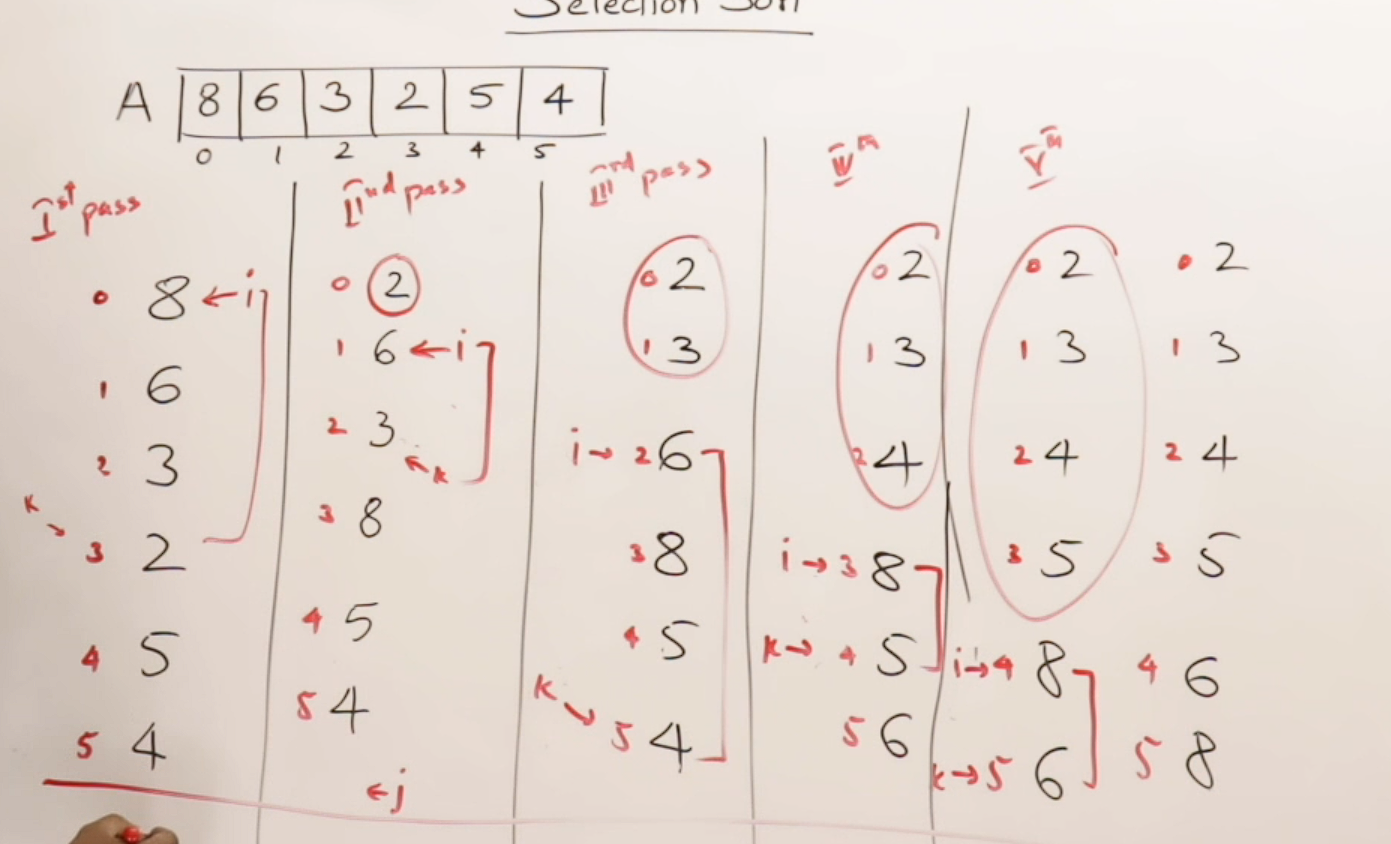 Selection Sort
A 8 6 3 2 5 4
0 1 2 3 4 5
Ist pass
0 8 ← i
1 6
2 3
k → 3 2
4 5
5 4
IInd pass
0 2
1 6 ← i
2 3 ← k
3 8
4 5
5 4
← j
IIIrd pass
0 2
1 3
i → 2 6
3 8
4 5
k → 5 4
IVth
0 2
1 3
2 4
i → 3 8
k → 4 5
5 6
Vth
0 2
1 3
2 4
3 5
i → 4 8
k → 5 6
0 2
1 3
2 4
3 5
4 6
5 8